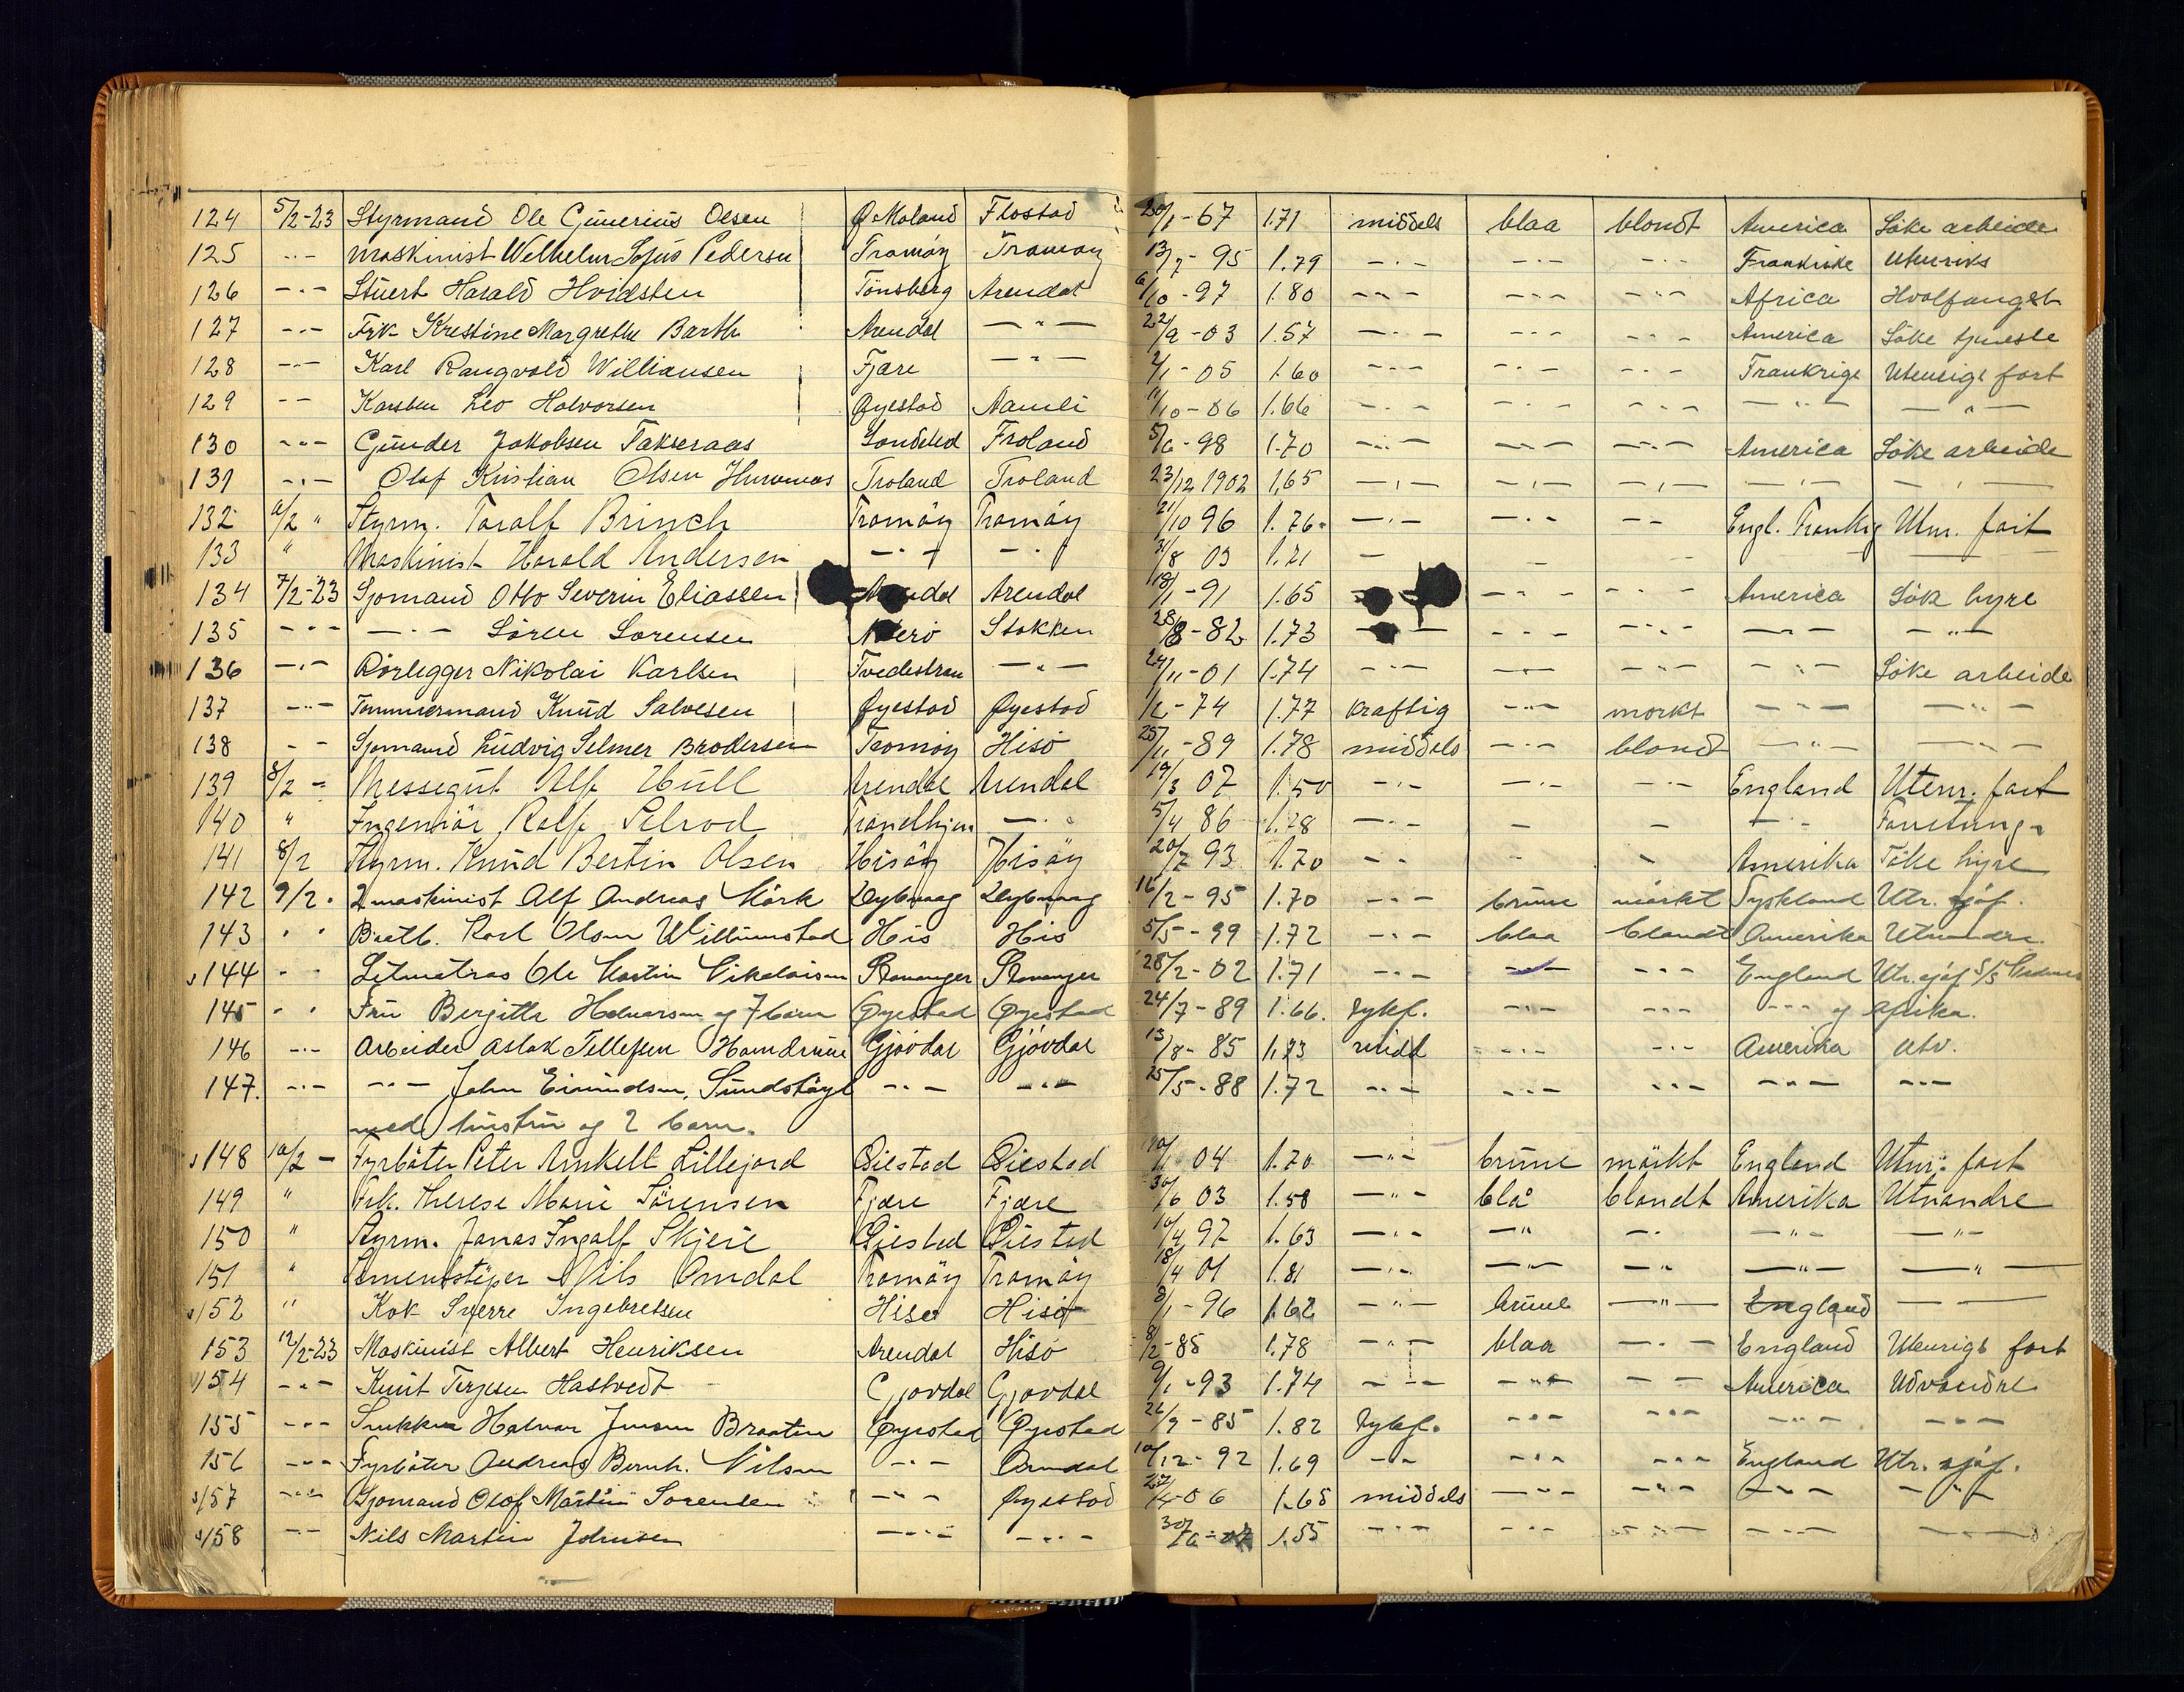 124 5/2-23 Styrmand Ole Gunerius Olsen Ø. Moland Flostad 20/1-67 1.71 middels blaa blondt America Söke arbeide
125 -"- Maskinist Wilhelm Sofus Pedersen Tromöy Tromöy 13/7-95 1.79 -"- -"- -"- Frankrike Utenriks
126 -"- Stuert Harald Hvidsten Tönsberg Arendal 6/10-97 1.80 -"- -"- -"- Africa Hvalfangst
127 -"- Frk Kristine Margrethe Barth Arendal -"- 22/9-03 1.57 -"- -"- -"- America Söke tjeneste
128 -"- Karl Rangvald Williamsen Fjære -"- 2/1-05 1.60 -"- -"- -"- Frankrige Utenrigs fart
129 -"- Karsten Leo Halvorsen Øyestad Aamli 11/10-86 1.66 -"- -"- -"- -"- -"-
130 -"- Gunder Jakobsen Takseraas Söndeled Froland 5/6-98 1.70 -"- -"- -"- America Söke arbeide
131 -"- Olaf Kristian Olsen Froland Froland 23/12 1902 1,65 -"- -"- -"- -"- -"-
132 6/2 " Styrm. Toralf Brinch Tromöy Tromöy 21/10 96 1.76 -"- -"- -"- Engl. Frankrig Utnr. fart
133 " Maskinist Harald Andersen -"- -"- 3/8 03 1.71 - - - - -
134 7/2-23 Sjömand Otto Severin Eliassen Arendal Arendal 18/1-91 1.65 -"- -"- -"- America Sök hyre
135 -"- -"- Sören Sorensen Stokken 28/8-82 1.73 -"- -"- -"- -"- -"-
136 -"- Rörlegger Nikolai Karlsen Tvedestran -"- 24/11-01 1.74 -"- -"- -"- -"- Söke arbeide
137 -"- Tömmermand Knud Salvesen Øyestad Øyestad 1/2-74 1.77 kraftig -"- morkt -"- -"-
138 -"- Sjomand Ludvig Selmer Brodersen Tromöy Hisö 25/11-89 1.78 middels -"- blondt -"- -"-
139 8/2 - Messegut Alf Hull Arendal Arendal 19/3 07 1.50 -"- -"- -"- England Utenr. fart
140 " Ingeniör Rolf Selrod Trondhjem -"- 5/4 86 1.78 -"- - - -"-
141 8/2 Styrm. Knud Bertin Olsen Hisöy Hisöy 20/7 93 1.70 -"- - - Amerika Söke hyre
142 9/2 . 2 maskinist Alf Andreas Mörk Dybvaag Dybvaag 16/2-95 1.70 -"- brune mörkt Tyskland Utr. sjöf.
143 " " Karl Olsen Willumstad His His 5/5-99 1.72 -"- blaa blondt Amerika Utvandre.
144 " " Letmatros Ole Martin Nikolaisen Stavanger Stavanger 28/2-02 1.71 -"- -"- -"- England Utr. sjöf S/S
145 " " Fru Bergitte Halvorsen og 7 barn Øyestad Øyestad 24/7-89 1.66. kykf. -"- -"- -"- og Afrika.
146 -"- Arbeider Aslak Tellefsen Gjövdal Gjövdal 13/8-85 1,73 midl -"- -"- Amerika utv.
147. -"- -"- John Eivindsen, -"- -"- 25/5-88 1.72 -"- -"- -"- -"- -"-
med hustru og 2 barn.
148 10/2 - Fyrböter Peter Amkell Lillejord Öiestad Öiestad 10/1 04 1.70 -"- brune mörkt England Utnr. fart
149 " Frk. Therese Marie Sörensen Fjære Fjære 30/6 03 1.58 -"- blå blondt Amerika Utvandre
150 " Styrm. Jonas Ingolf Skjeie Öiestad Öiestad 10/4 97 1.63 -"- -"- -"- -"- -"-
151 " Sementstöper Nils Omdal Tromöy Tromöy 18/4 01 1.81 -"- -"- -"- -"- -"-
152 " Kok Sverre Ingebretsen Hisö Hisö 8/1-96 1.62 -"- brune -"- England -"-
153 12/2-23 Maskinist Albert Henriksen Arendal Hisö 8/2-85 1.78 -"- blaa -"- England Utenrigs fart
154 -"- Knut Terjesen Hastvedt Gjövdal Gjövdal 9/1-93 1.74 -"- -"- -"- America Udvandre
155 -"- Snekker Halvor Jensen Braaten Øyestad Øyestad 26/9-85 1.82 kykf. -"- -"- -"- -"-
156 -"- Fyrböter Andreas Bernh. Nilsen -"- Arendal 10/12-92 1.69 -"- -"- -"- England Utr. sjöf.
157 -"- Sjömand Olof Martin Sorensen -"- Øyestad 27/4-06 1.68 middels -"- -"- -"- -"-
158 -"- Nils Martin Johnsen -"- -"- 1.55 -"- -"- -"- -"- -"-